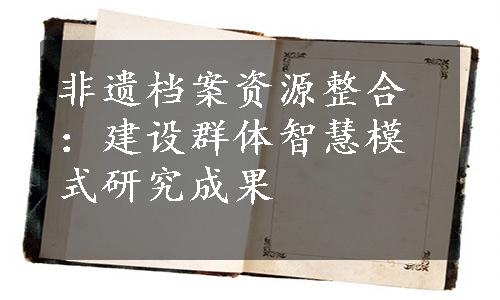 非遗档案资源整合
：建设群体智慧模
式研究成果